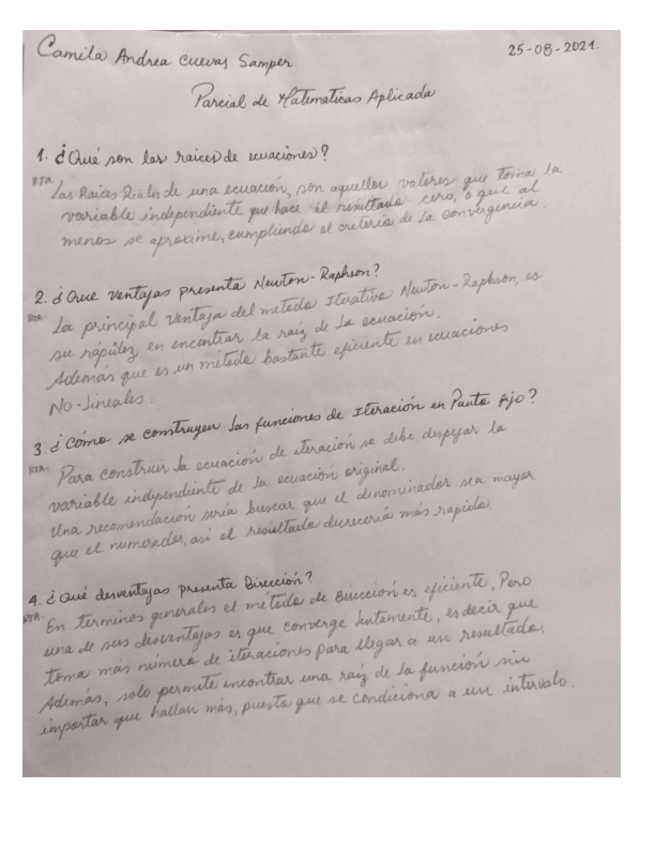 Camila Andrea Cuevas Samper
25-08-2021.
Parcial de Matematicas Aplicada
1. ¿Qué son las raices de ecuaciones?
RTA. Las Raices Reales de una ecuación, son aquellos valores que toma la
variable independiente que hace el resultado cero, o que al
menos se aproxime, cumpliendo el criterio de la convergencia.
2. ¿Que ventajas presenta Newton-Raphson?
RTA. La principal ventaja del metodo Iterativo Newton-Raphson, es
su rápidez en encontrar la raíz de la ecuación.
Además que es un método bastante eficiente en ecuaciones
No-Lineales.
3. ¿Cómo se construyen las funciones de Iteración en Punto fijo?
RTA. Para construir la ecuación de iteración se debe despejar la
variable independiente de la ecuación original.
Una recomendación sería buscar que el denominador sea mayor
que el numerador, así el resultado decrecería más rapido.
4. ¿Qué desventajas presenta Bisección?
RTA. En terminos generales el método de Bisección es eficiente, Pero
una de sus desventajas es que converge lentamente, es decir que
toma más número de iteraciones para llegar a un resultado.
Además, solo permite encontrar una raíz de la función sin
importar que hallan más, puesto que se condiciona a un intervalo.